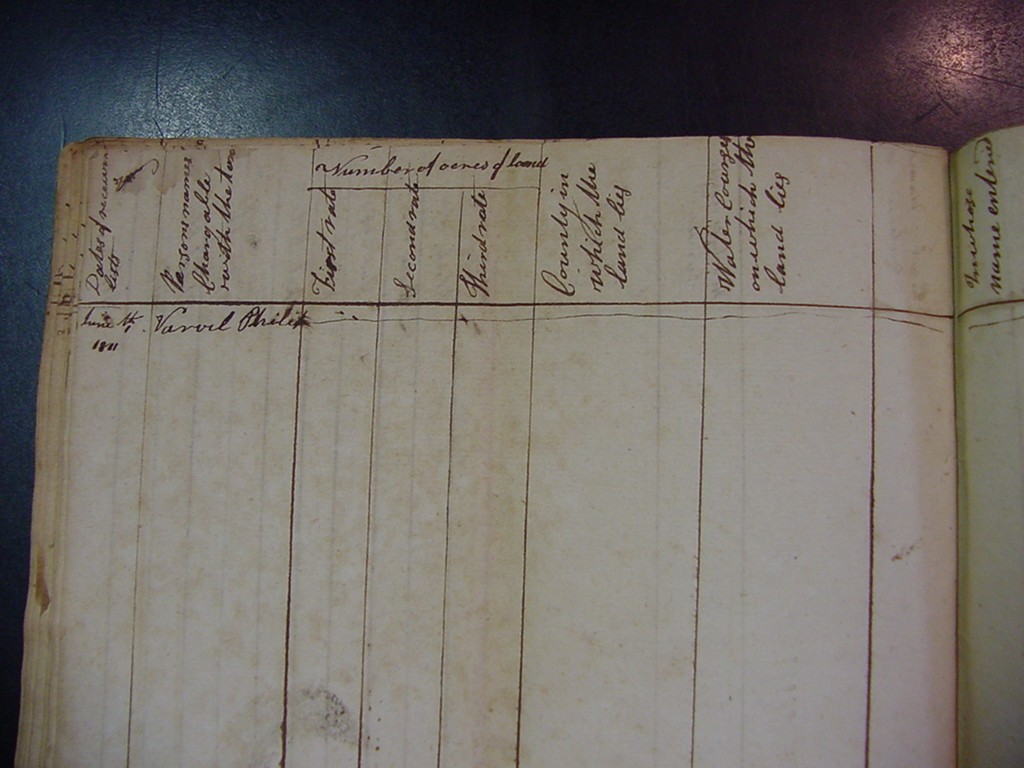 Dates of receivin
lists
Persons names
Chargable
with the tax
Number of acres of land
First rate
Second rate
Third rate
County in
which the
land lies
Water Courses
on which the
land lies
In whose
name entered
June 4. Varvil Philip
1811